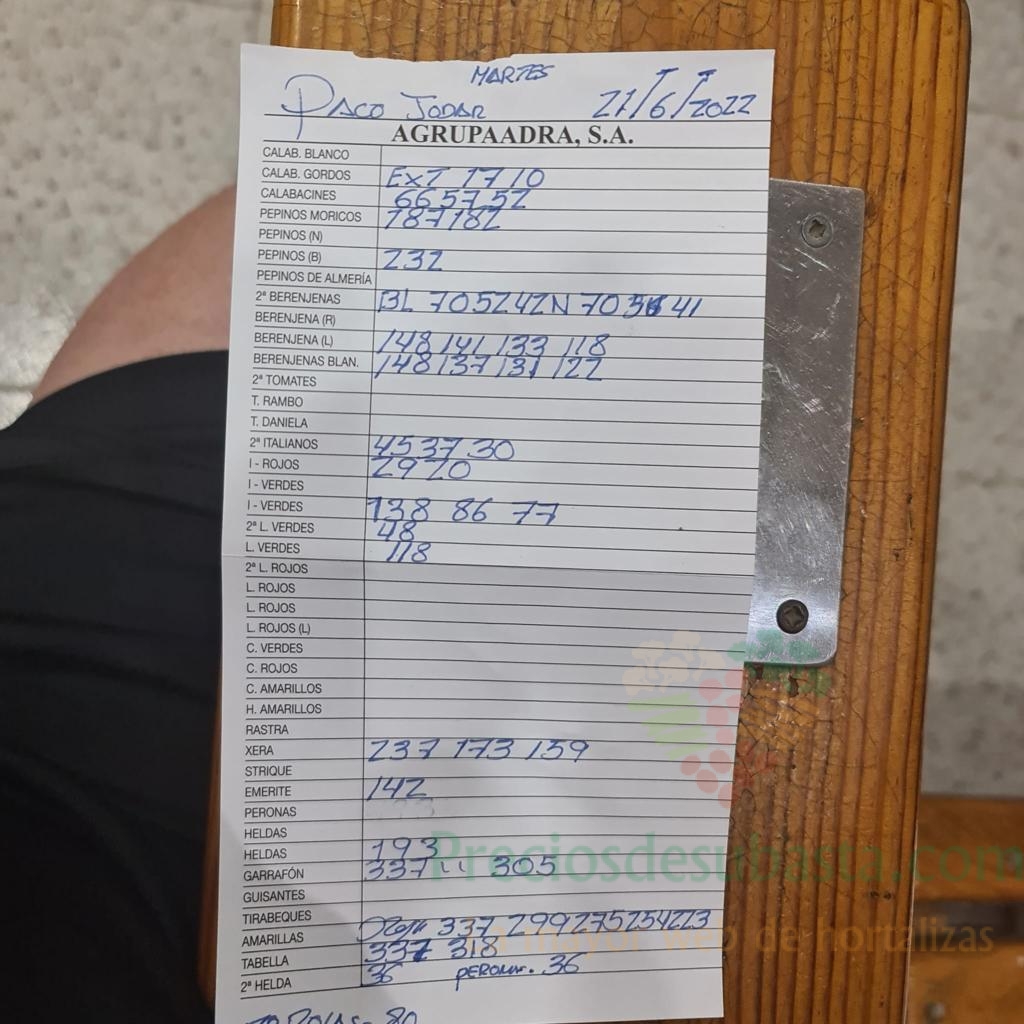 MARTES
PACO JODAR 21/6/2022
AGRUPAADRA, S.A.
CALAB. BLANCO
CALAB. GORDOS EXT 17 10
CALABACINES 66 57 52
PEPINOS MORICOS 187 182
PEPINOS (N)
PEPINOS (B) 232
PEPINOS DE ALMERÍA
2ª BERENJENAS BL 70 52 42 N 70 41
BERENJENA (R)
BERENJENA (L) 148 141 133 118
BERENJENAS BLAN. 148 137 131 122
2ª TOMATES
T. RAMBO
T. DANIELA
2ª ITALIANOS 45 37 30
I - ROJOS 29 20
I - VERDES
I - VERDES 138 86 77
2ª L. VERDES 48
L. VERDES 118
2ª L. ROJOS
L. ROJOS
L. ROJOS
L. ROJOS (L)
C. VERDES
C. ROJOS
C. AMARILLOS
H. AMARILLOS
RASTRA
XERA 237 173 159
STRIQUE
EMERITE 142
PERONAS
HELDAS
HELDAS 193
GARRAFÓN 337 305
GUISANTES
TIRABEQUES
AMARILLAS 337 299 275 254 223
TABELLA 337 318
2ª HELDA 36 PERONA. 36
80
Preciosdesubasta.com
mayor web de hortalizas